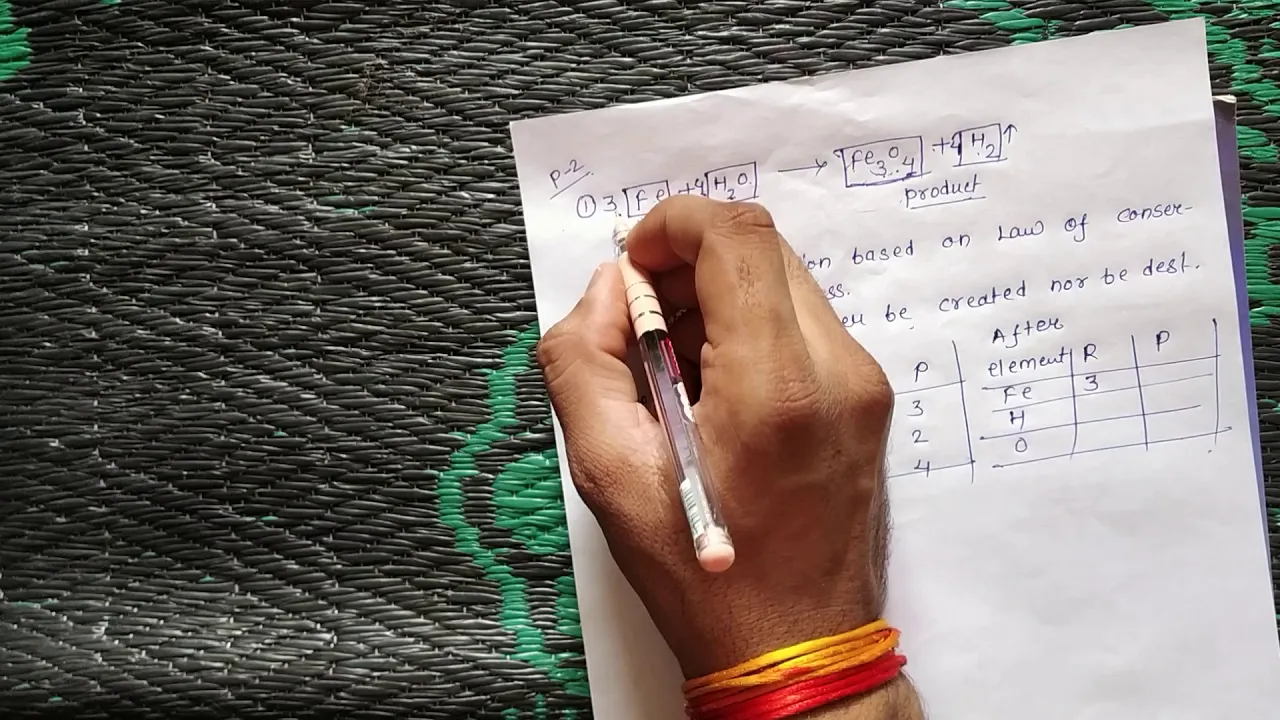 P-2
① 3 Fe + 4 H₂O → Fe₃O₄ + 4 H₂ ↑
product
based on Law of conser-
be created nor be dest.
After
P element R P
3 Fe 3
2 H
4 O